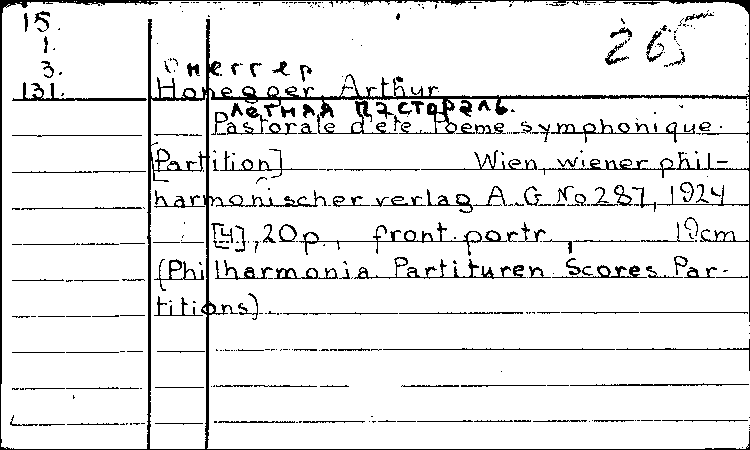 15.
1.
3.
131.
265
Онеггер
Honegger, Arthur
Летняя пастораль.
Pastorale d'ete. Poeme symphonique.
[Partition] Wien, wiener phil-
harmonischer verlag A.G No 287, 1924
[4], 20p., front.portr., 19cm
(Philharmonia Partituren. Scores. Par-
titions).